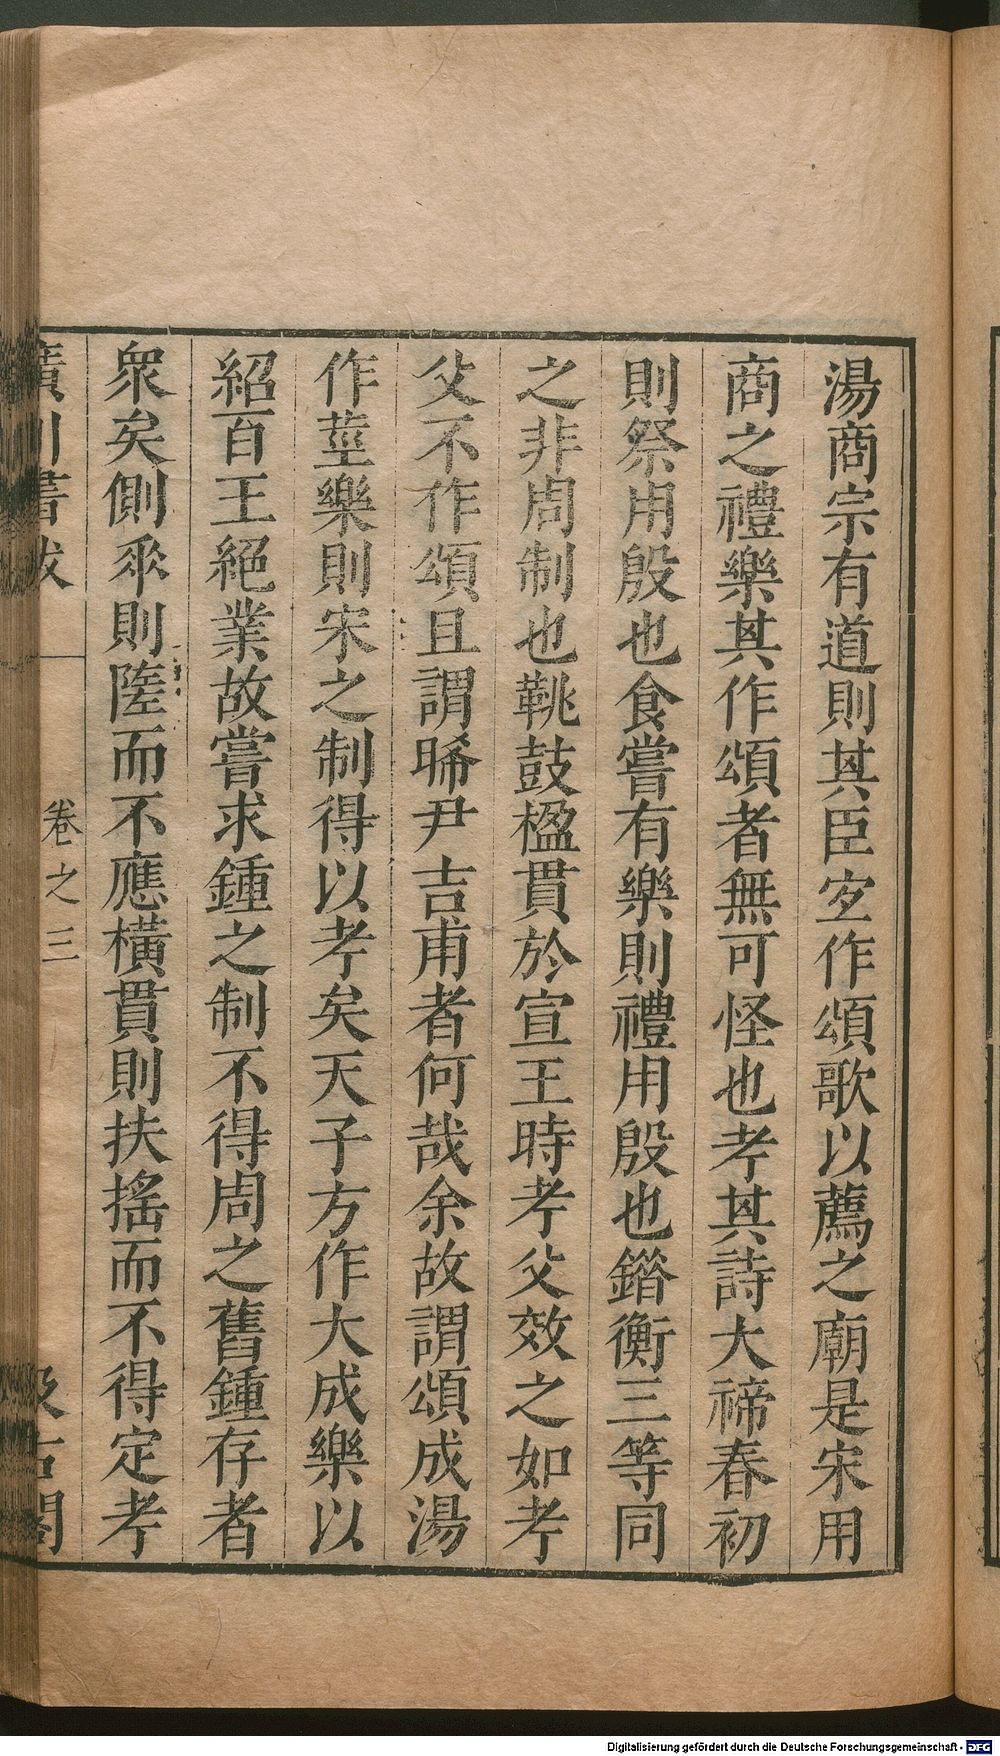 湯商宗有道則其臣宜作頌歌以薦之廟是宋用
商之禮樂其作頌者無可怪也考其詩大禘春初
則祭用殷也食嘗有樂則禮用殷也鍇衡三等同
之非周制也鞉鼓楹貫於宣王時考父效之如考
父不作頌且謂晞尹吉甫者何哉余故謂頌成湯
作莖樂則宋之制得以考矣天子方作大成樂以
紹百王絕業故嘗求鍾之制不得周之舊鍾存者
衆矣側乖則陸而不應橫貫則扶搖而不得定考
廣川書跋 卷之三 汲古閣
Digitalisierung gefördert durch die Deutsche Forschungsgemeinschaft - DFG